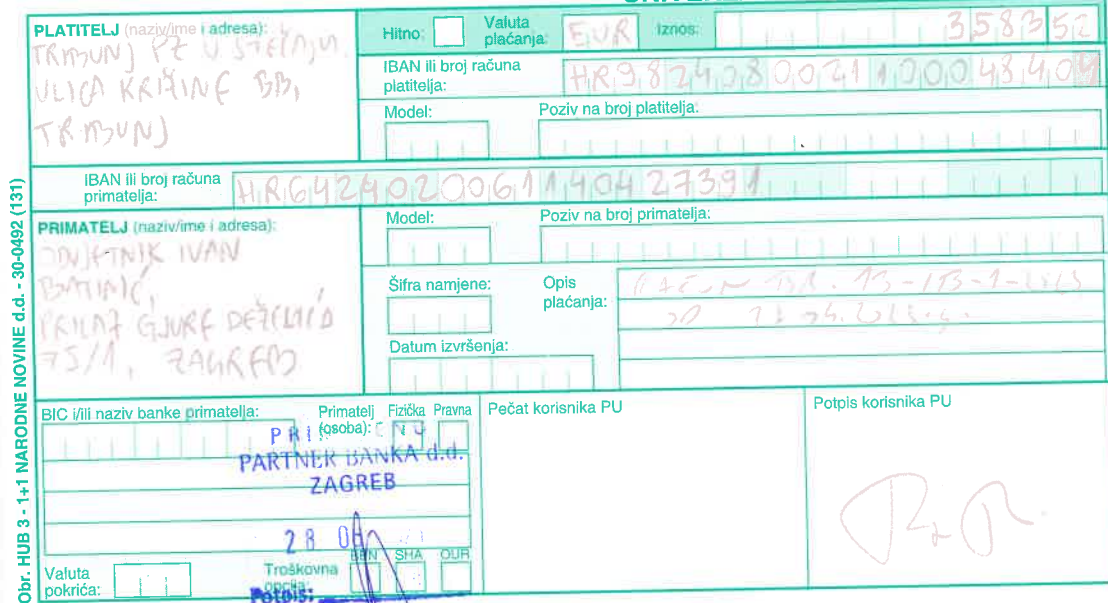 PLATITELJ (naziv/ime i adresa):
TRIBUNJ PZ U STEČAJU
ULICA KRIŽINE BB,
TRIBUNJ
Hitno:
Valuta plaćanja: EUR
Iznos: 3583 52
IBAN ili broj računa platitelja: HR9824080021100048404
Model:
Poziv na broj platitelja:
IBAN ili broj računa primatelja: HR6424020061140427391
PRIMATELJ (naziv/ime i adresa):
ODVJETNIK IVAN
BATINIĆ,
PRILAZ GJURE DEŽELIĆA
75/1, ZAGREB
Model:
Poziv na broj primatelja:
Šifra namjene:
Opis plaćanja:
RAČUN BR.
Datum izvršenja:
BIC i/ili naziv banke primatelja:
Primatelj (osoba):
Fizička
Pravna
PARTNER BANKA d.d.
ZAGREB
28
Pečat korisnika PU
Potpis korisnika PU
Valuta pokrića:
Troškovna opcija:
BEN
SHA
OUR
Potpis:
Obr. HUB 3 - 1+1 NARODNE NOVINE d.d. - 30-0492 (131)